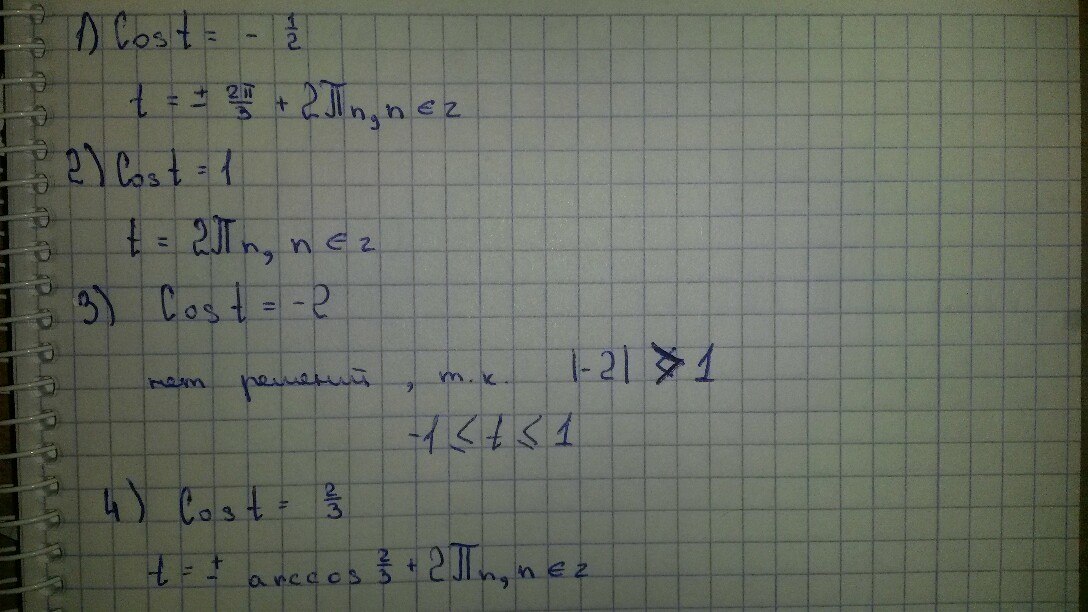 1) Cos t = - 1/2
t = ± 2π/3 + 2πn, n ∈ z
2) Cos t = 1
t = 2πn, n ∈ z
3) Cos t = -2
нет решений, т.к. |-2| > 1
-1 ≤ t ≤ 1
4) Cos t = 2/3
t = ± arccos 2/3 + 2πn, n ∈ z